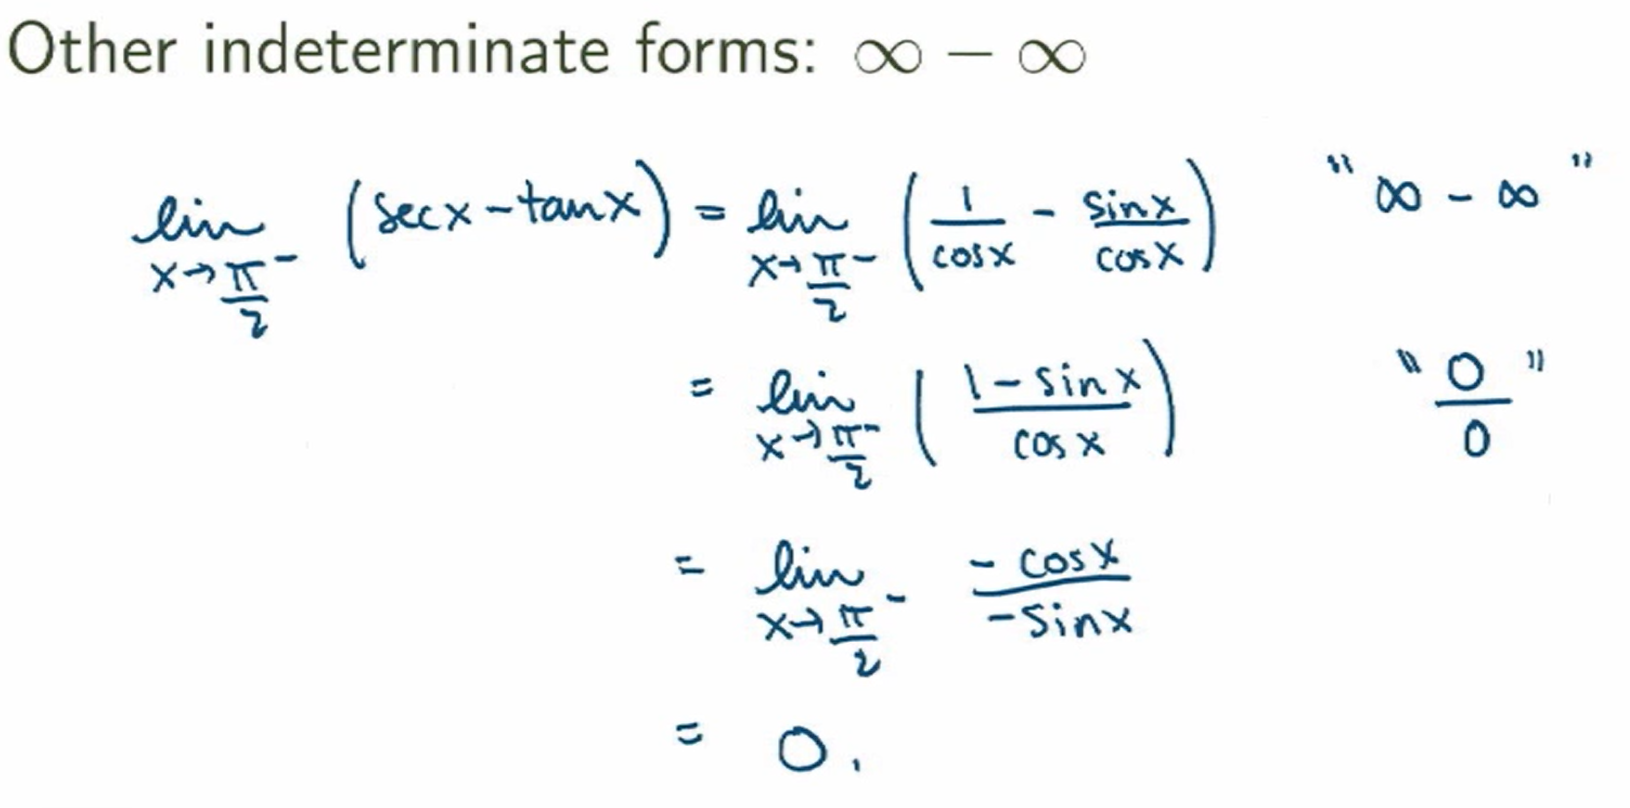 Other indeterminate forms: ∞ − ∞
lim x→π/2⁻ (secx − tanx) = lim x→π/2⁻ (1/cosx − sinx/cosx) "∞ − ∞"
= lim x→π/2⁻ ((1 − sinx)/cosx) "0/0"
= lim x→π/2⁻ (−cosx)/(−sinx)
= 0.